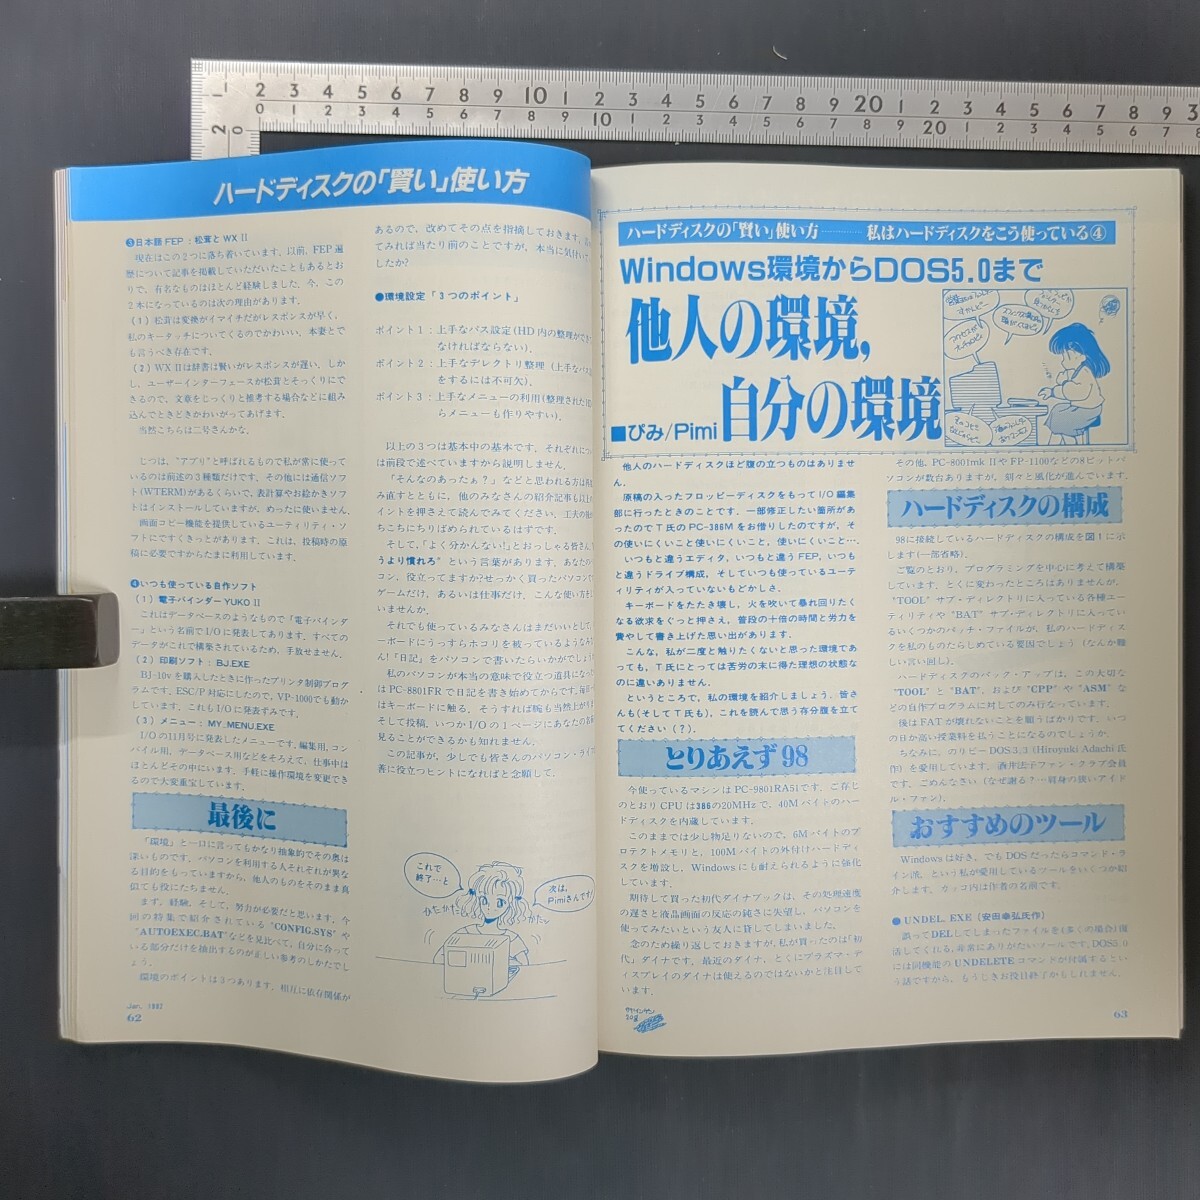 ハードディスクの「賢い」使い方
❸日本語FEP：松茸とWXⅡ
現在はこの2つに落ち着いています。以前、FEP遍
歴について記事を掲載していただいたこともあるとお
りで、有名なものはほとんど経験しました。今、この
2本になっているのは次の理由があります。
（1）松茸は変換がイマイチだがレスポンスが早く、
私のキータッチについてくるのでかわいい。本妻とで
も言うべき存在です。
（2）WXⅡは辞書は賢いがレスポンスが遅い。しか
し、ユーザーインターフェースが松茸とそっくりにで
きるので、文章をじっくりと推考する場合などに組み
込んでときどきかわいがってあげます。
当然こちらは二号さんかな。
じつは、“アプリ”と呼ばれるもので私が常に使って
いるのは前述の3種類だけです。その他には通信ソフ
ト(WTERM)があるくらいで、表計算やお絵かきソフ
トはインストールしていますが、めったに使いません。
画面コピー機能を提供しているユーティリティ・ソ
フトにですくきっとがあります。これは、投稿時の原
稿に必要ですからたまに利用しています。
❹いつも使っている自作ソフト
（1）電子バインダーYUKOⅡ
これはデータベースのようなもので「電子バインダ
ー」という名前でI/Oに発表してあります。すべての
データがこれで構築されているため、手放せません。
（2）印刷ソフト：BJ.EXE
BJ-10vを購入したときに作ったプリンタ制御プログ
ラムです。ESC/P対応にしたので、VP-1000でも動か
しています。これもI/Oに発表ずみです。
（3）メニュー：MY_MENU.EXE
I/Oの11月号に発表したメニューです。編集用、コン
パイル用、データベース用などをそろえて、仕事中は
ほとんどその中にいます。手軽に操作環境を変更でき
るので大変重宝しています。
最後に
「環境」と一口に言ってもかなり抽象的でその奥は
深いものです。パソコンを利用する人それぞれが異な
る目的をもっていますから、他人のものをそのまま真
似ても役にたちません。
まず、経験、そして、努力が必要だと思います。今
回の特集で紹介されている“CONFIG.SYS”や
“AUTOEXEC.BAT”などを見比べて、自分に合って
いる部分だけを抽出するのが正しい参考のしかたでし
ょう。
環境のポイントは3つあります。相互に依存関係が
Jan. 1992
62
あるので、改めてその点を指摘しておきます。
てみれば当たり前のことですが、本当に気付い
したか?
●環境設定「3つのポイント」
ポイント1：上手なパス設定(HD内の整理ができ
なければならない)。
ポイント2：上手なデレクトリ整理(上手なパ
をするには不可欠)。
ポイント3：上手なメニューの利用(整理された
らメニューも作りやすい)。
以上の3つは基本中の基本です。それぞれにつ
は前段で述べていますから説明しません。
「そんなのあったぁ？」などと思われる方は再
み直すとともに、他のみなさんの紹介記事も以
イントを押さえて読んでみてください。工夫の
ちこちにちりばめられているはずです。
そして、「よく分かんない!」とおっしゃる皆さん
うより慣れろ”という言葉があります。あなたの
コン、役立ってますか?せっかく買ったパソコン
ゲームだけ、あるいは仕事だけ、こんな使い方
いませんか。
それでも使っているみなさんはまだいいとして、
ーボードにうっすらホコリを被っているような
ん!「日記」をパソコンで書いたらいかがでしょう
私のパソコンが本当の意味で役立つ道具になっ
はPC-8801FRで日記を書き始めてからです。毎日
はキーボードに触る、そうすれば腕も当然上が
そして投稿、いつかI/Oの1ページにあなたの名
見ることができるかも知れません。
この記事が、少しでも皆さんのパソコン・ライ
善に役立つヒントになればと念願して。
これで
終了…と
次は、
Pimiさんです!
カタカタ
カタッ
ハードディスクの「賢い」使い方……私はハードディスクをこう使っている④
Windows環境からDOS5.0まで
他人の環境,
自分の環境
■ぴみ/Pimi
他人のハードディスクほど腹の立つものはありませ
ん。
原稿の入ったフロッピーディスクをもってI/O編集
部に行ったときのことです。一部修正したい箇所があ
ったのでT氏のPC-386Mをお借りしたのですが、そ
の使いにくいこと使いにくいこと。使いにくいこと…。
いつもと違うエディタ、いつもと違うFEP、いつも
と違うドライブ構成、そしていつも使っているユーテ
ィリティが入っていないもどかしさ。
キーボードをたたき壊し、火を吹いて暴れ回りたく
なる欲求をぐっと押さえ、普段の十倍の時間と労力を
費やして書き上げた思い出があります。
こんな、私が二度と触りたくないと思った環境であ
っても、T氏にとっては苦労の末に得た理想の状態な
のに違いありません。
というところで、私の環境を紹介しましょう。皆さ
んも(そしてT氏も)、これを読んで思う存分腹を立て
てください(?)。
とりあえず98
今使っているマシンはPC-9801RA51です。ご存じ
のとおりCPUは386の20MHzで、40Mバイトのハー
ドディスクを内蔵しています。
このままでは少し物足りないので、6Mバイトのプ
ロテクトメモリと、100Mバイトの外付けハードディ
スクを増設し、Windowsにも耐えられるように強化
しています。
期待して買った初代ダイナブックは、その処理速度
の遅さと液晶画面の反応の鈍さに失望し、パソコンを
使ってみたいという友人に貸してしまいました。
念のため繰り返しておきますが、私が買ったのは「初
代」ダイナです。最近のダイナ、とくにプラズマ・ディ
スプレイのダイナは使えるのではないかと注目して
います。
その他、PC-8001mkⅡやFP-1100などの8ビットパ
ソコンが数台ありますが、刻々と風化が進んでいます。
ハードディスクの構成
98に接続しているハードディスクの構成を図1に示
します(一部省略)。
ご覧のとおり、プログラミングを中心に考えて構築
しています。とくに変わったところはありませんが、
“TOOL”サブ・ディレクトリに入っている各種ユー
ティリティや“BAT”サブ・ディレクトリに入ってい
るいくつかのバッチ・ファイルが、私のハードディス
クを私のものたらしめている要因でしょう(なんか難
しい言い回し)。
ハードディスクのバック・アップは、この大切な
“TOOL”と“BAT”、および“CPP”や“ASM”な
どの自作プログラムに対してのみ行なっています。
後はFATが壊れないことを願うばかりです。いつ
の日か高い授業料を払うことになるのでしょうか。
ちなみに、のりピーDOS3.3(Hiroyuki Adachi氏
作)を愛用しています。酒井法子ファン・クラブ会員
です。ごめんなさい(なぜ謝る？…脛身の狭いアイド
ル・ファン)。
おすすめのツール
Windowsは好き、でもDOSだったらコマンド・ラ
イン派、という私が愛用しているツールをいくつか紹
介します。カッコ内は作者の名前です。
●UNDEL.EXE(安田幸弘氏作)
誤ってDELしてしまったファイルを(多くの場合)復
活してくれる、非常にありがたいツールです。DOS5.0
には同機能のUNDELETEコマンドが付属するとい
う話ですから、もうじきお役目終了かもしれません。
63